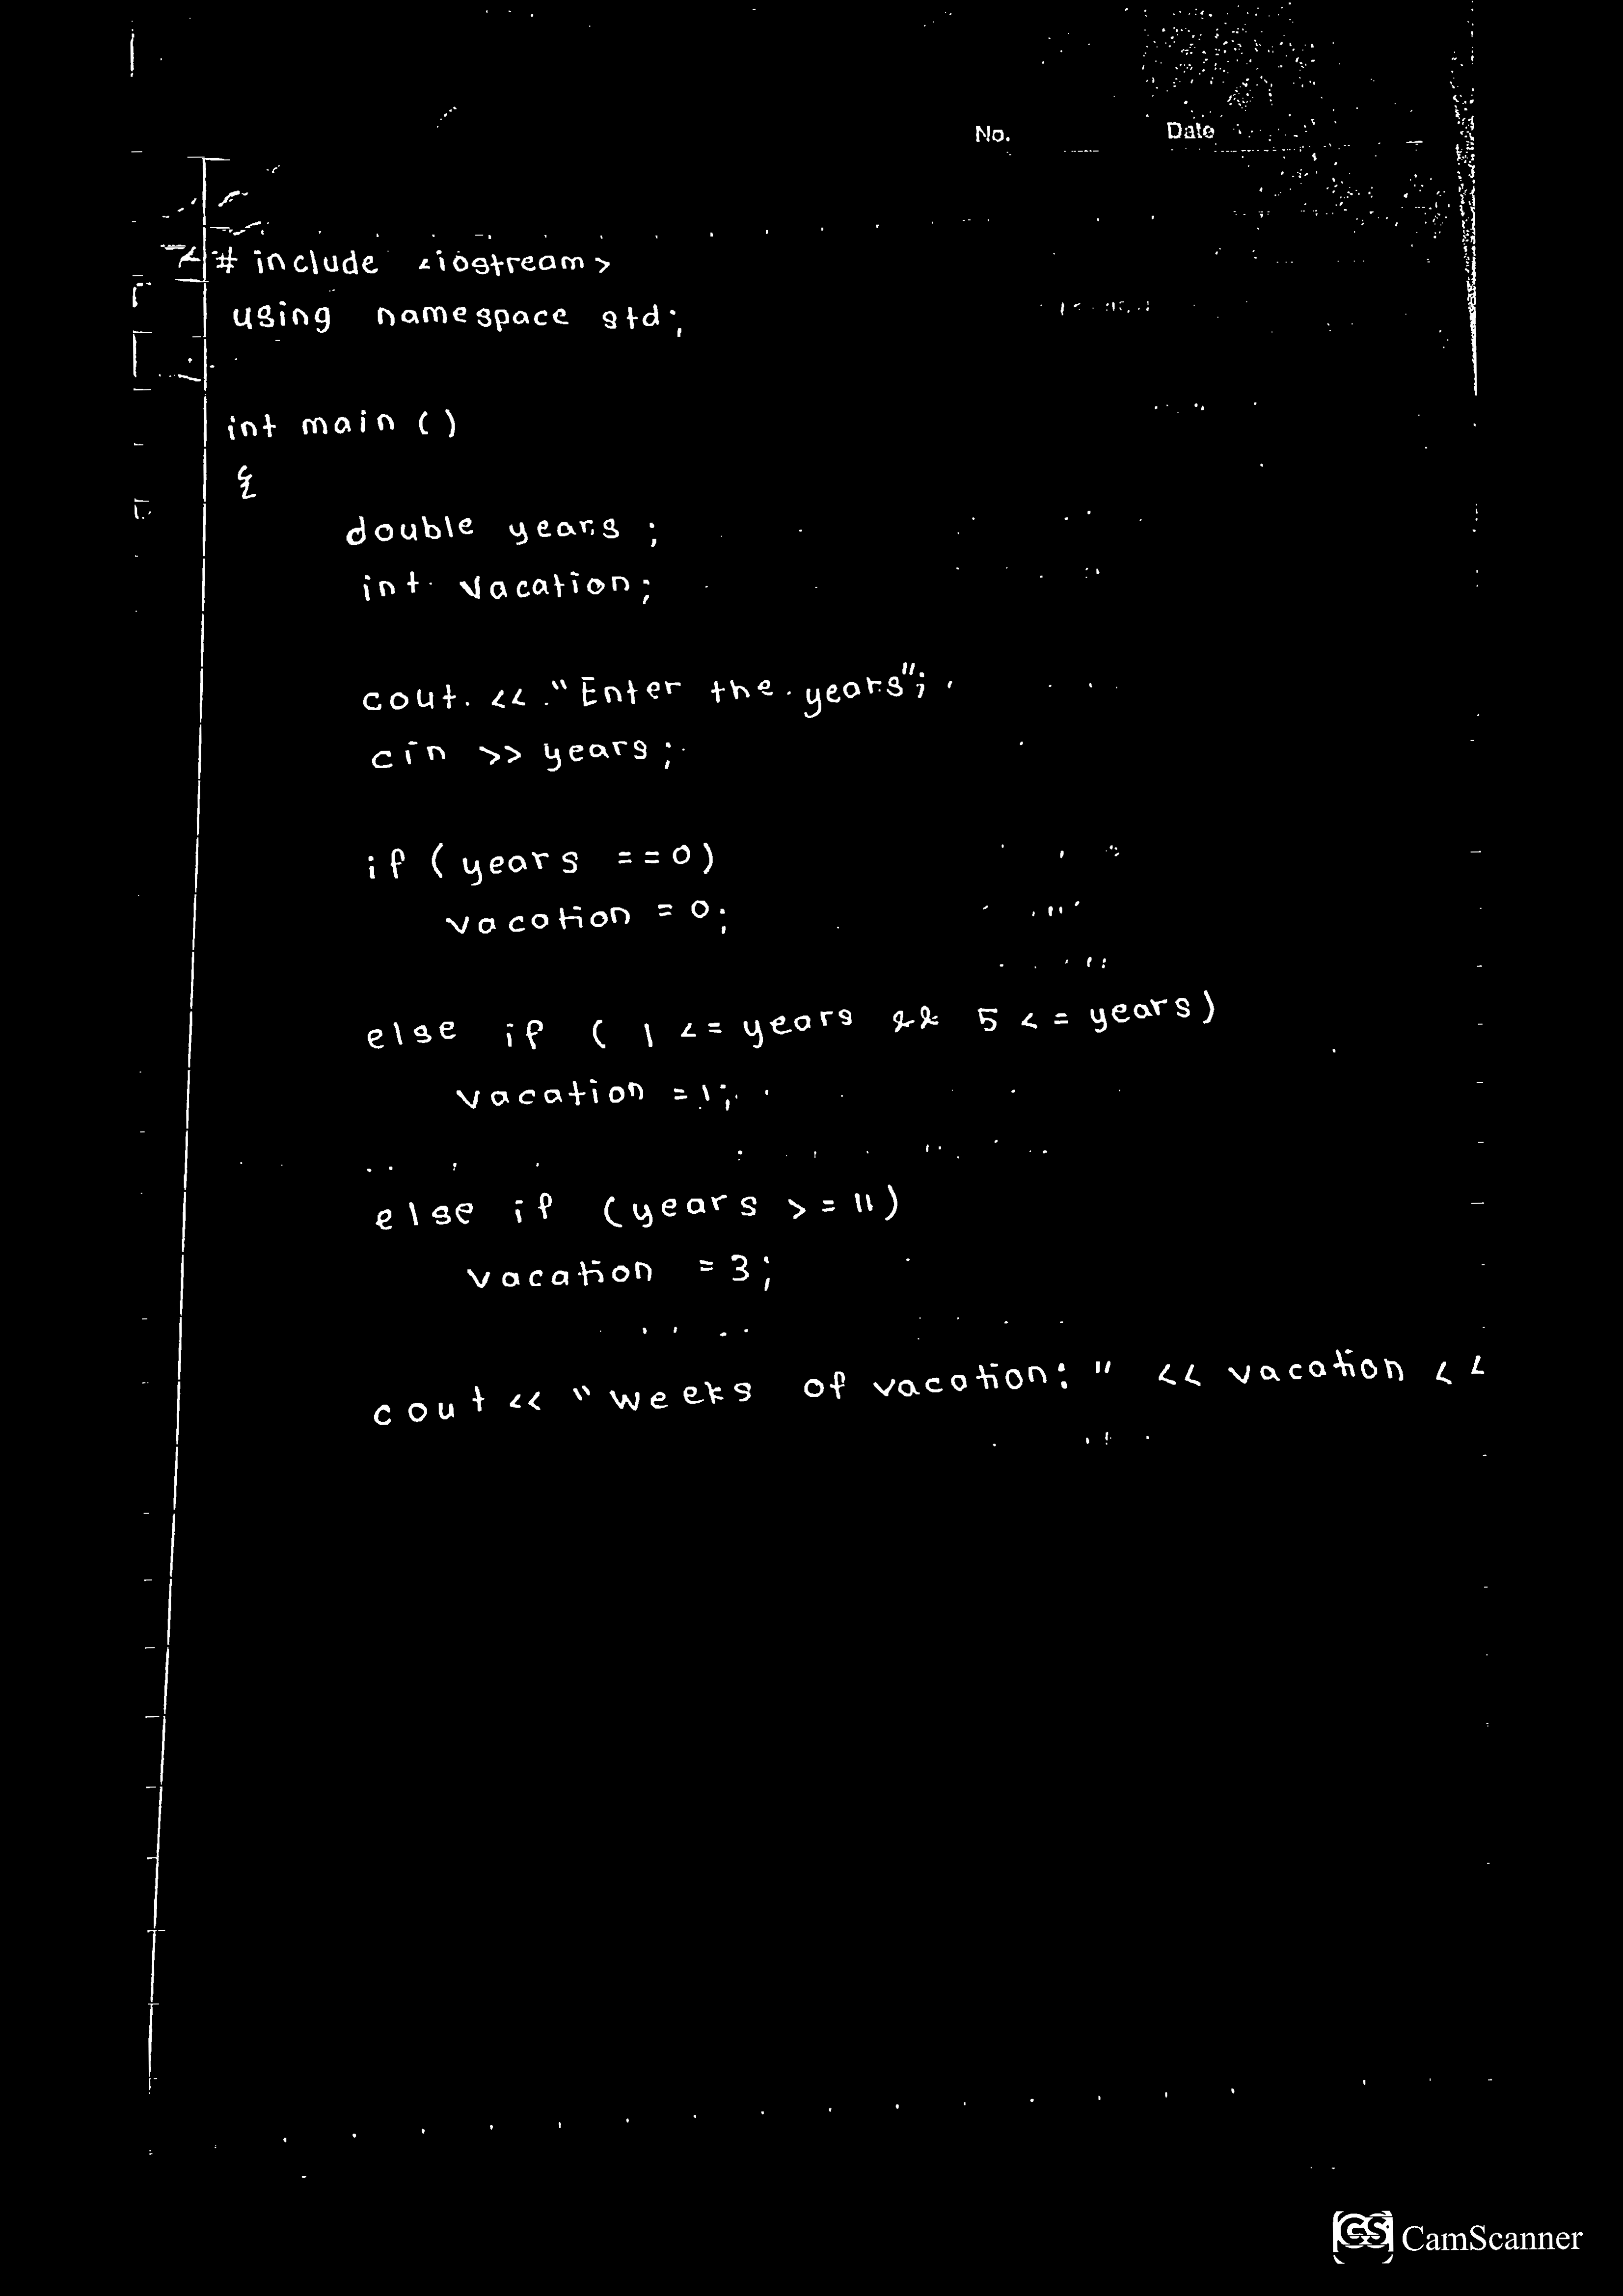 No. Date
# include <iostream>
using namespace std;
int main ()
{
double years ;
int vacation;
cout << "Enter the years";
cin >> years ;
if ( years == 0 )
vacation = 0;
else if ( 1 <= years && 5 <= years )
vacation = 1;
else if ( years >= 11 )
vacation = 3;
cout << "weeks of vacation: " << vacation <<
CS CamScanner